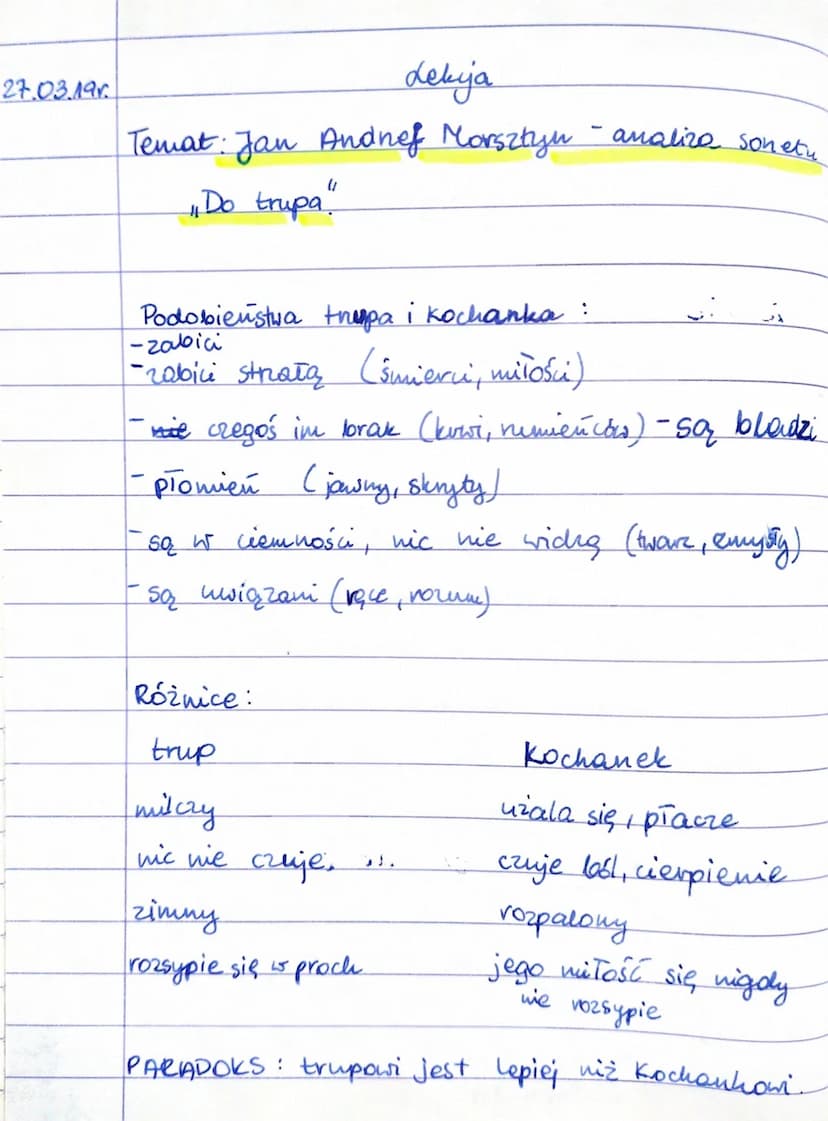 27.03.19r.
Lekcja
Temat: Jan Andrzej Morsztyn - analiza sonetu
„Do trupa”
Podobieństwa trupa i kochanka :
- zabici
- zabici strzałą (śmierci, miłości)
- nie czegoś im brak (krwi, rumieńców) - są bladzi
- płomień (jawny, skryty)
- są w ciemności, nic nie widzą (twarz, zmysły)
- są uwiązani (ręce, rozum)
Różnice :
trup kochanek
milczy użala się, płacze
nic nie czuje. czuje ból, cierpienie
zimny rozpalony
rozsypie się w proch jego miłość się nigdy
nie rozsypie
PARADOKS : trupowi jest lepiej niż kochankowi.